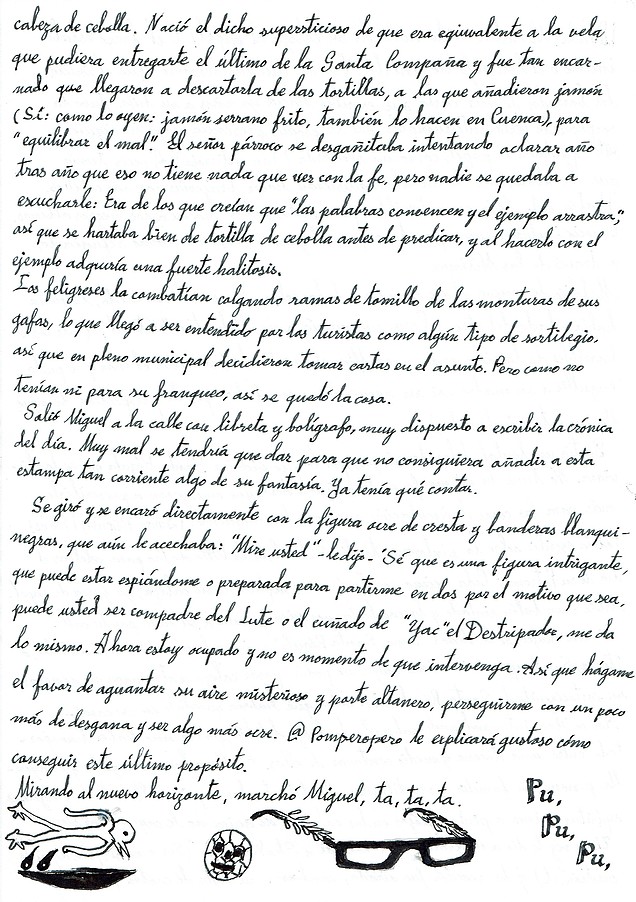 cabeza de cebolla. Nació el dicho supersticioso de que era equivalente a la vela
que pudiera entregarte el último de la Santa Compaña y fue tan encar-
nado que llegaron a descartarla de las tortillas, a las que añadieron jamón
(Sí: como lo oyen: jamón serrano frito, también lo hacen en Cuenca), para
"equilibrar el mal." El señor párroco se desgañitaba intentando aclarar año
tras año que eso no tiene nada que ver con la fe, pero nadie se quedaba a
escucharle: Era de los que creían que "las palabras convencen y el ejemplo arrastra",
así que se hartaba bien de tortilla de cebolla antes de predicar, y al hacerlo con el
ejemplo adquiría una fuerte halitosis.
Los feligreses la combatían colgando ramas de tomillo de las monturas de sus
gafas, lo que llegó a ser entendido por los turistas como algún tipo de sortilegio,
así que en pleno municipal decidieron tomar cartas en el asunto. Pero como no
tenían ni para su franqueo, así se quedó la cosa.
Salió Miguel a la calle con libreta y bolígrafo, muy dispuesto a escribir la crónica
del día. Muy mal se tendría que dar para que no consiguiera añadir a esta
estampa tan corriente algo de su fantasía. Ya tenía qué contar.
Se giró y se encaró directamente con la figura ocre de cresta y banderas blanqui-
negras, que aún le acechaba: "Mire usted" - le dijo - "Sé que es una figura intrigante,
que puede estar espiándome o preparada para partirme en dos por el motivo que sea,
puede usted ser compadre del Lute o el cuñado de "Yac" el Destripador, me da
lo mismo. Ahora estoy ocupado y no es momento de que intervenga. Así que hágame
el favor de aguantar su aire misterioso y porte altanero, perseguirme con un poco
más de desgana y ser algo más ocre. @Pomperopero le explicará gustoso cómo
conseguir este último propósito.
Mirando al nuevo horizonte, marchó Miguel, ta, ta, ta.
Pu,
Pu,
Pu,